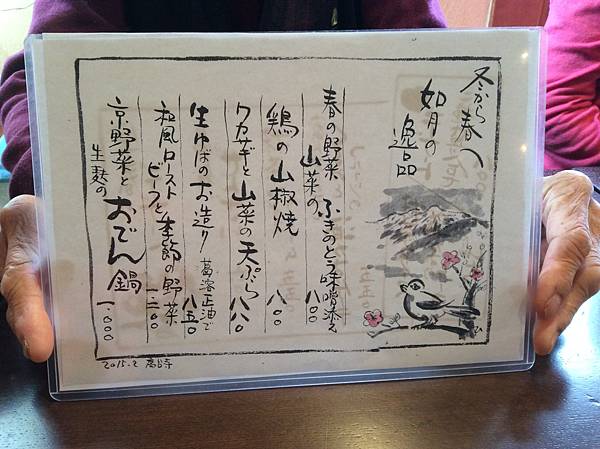 冬から春へ
如月の
逸品
春の野菜
山菜の
ふきのとう味噌添え
八〇〇
鶏の山椒焼
八〇〇
ワカサギと山菜の天ぷら 八八〇
生ゆばのお造り 葛溶正油で
八五〇
和風ロースト
ビーフと季節の野菜
一二〇〇
京野菜と
生麩の
おでん鍋
一、〇〇〇
2015.2